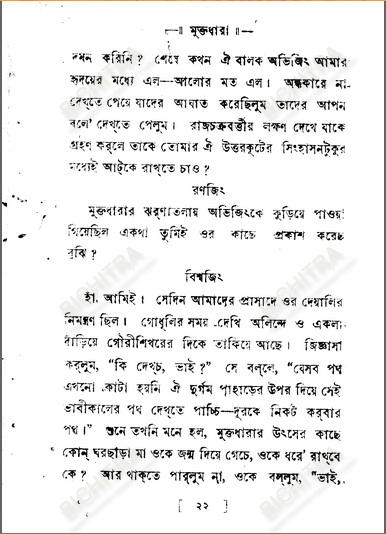 —॥ মুক্তধারা ॥—
দমন করিনি? শেষে কখন ঐ বালক অভিজিৎ আমার
হৃদয়ের মধ্যে এল—আলোর মত এল। অন্ধকারে না
দেখ্‌তে পেয়ে যাদের আঘাত করেছিলুম তাদের আপন
বলে’ দেখ্‌তে পেলুম। রাজচক্রবর্ত্তীর লক্ষণ দেখে যাকে
গ্রহণ কর্‌লে তাকে তোমার ঐ উত্তরকূটের সিংহাসনটুকুর
মধ্যেই আট্‌কে রাখ্‌তে চাও?
রণজিৎ
মুক্তধারার ঝর্‌ণাতলায় অভিজিৎকে কুড়িয়ে পাওয়া
গিয়েছিল একথা তুমিই ওর কাছে প্রকাশ করেচ
বুঝি?
বিশ্বজিৎ
হাঁ, আমিই। সেদিন আমাদের প্রাসাদে ওর দেয়ালির
নিমন্ত্রণ ছিল। গোধূলির সময় দেখি অলিন্দে ও একলা
দাঁড়িয়ে গৌরীশিখরের দিকে তাকিয়ে আছে। জিজ্ঞাসা
কর্‌লুম, “কি দেখ্‌চ, ভাই?” সে বল্‌লে, “যেসব পথ
এখনো কাটা হয়নি ঐ দুর্গম পাহাড়ের উপর দিয়ে সেই
ভাবীকালের পথ দেখ্‌তে পাচ্চি—দূরকে নিকট কর্‌বার
পথ।” শুনে তখনি মনে হল, মুক্তধারার উৎসের কাছে
কোন্ ঘরছাড়া মা ওকে জন্ম দিয়ে গেচে, ওকে ধরে’ রাখ্‌বে
কে? আর থাক্‌তে পার্‌লুম না, ওকে বল্‌লুম, “ভাই,
[ ২২ ]
RICHITRA